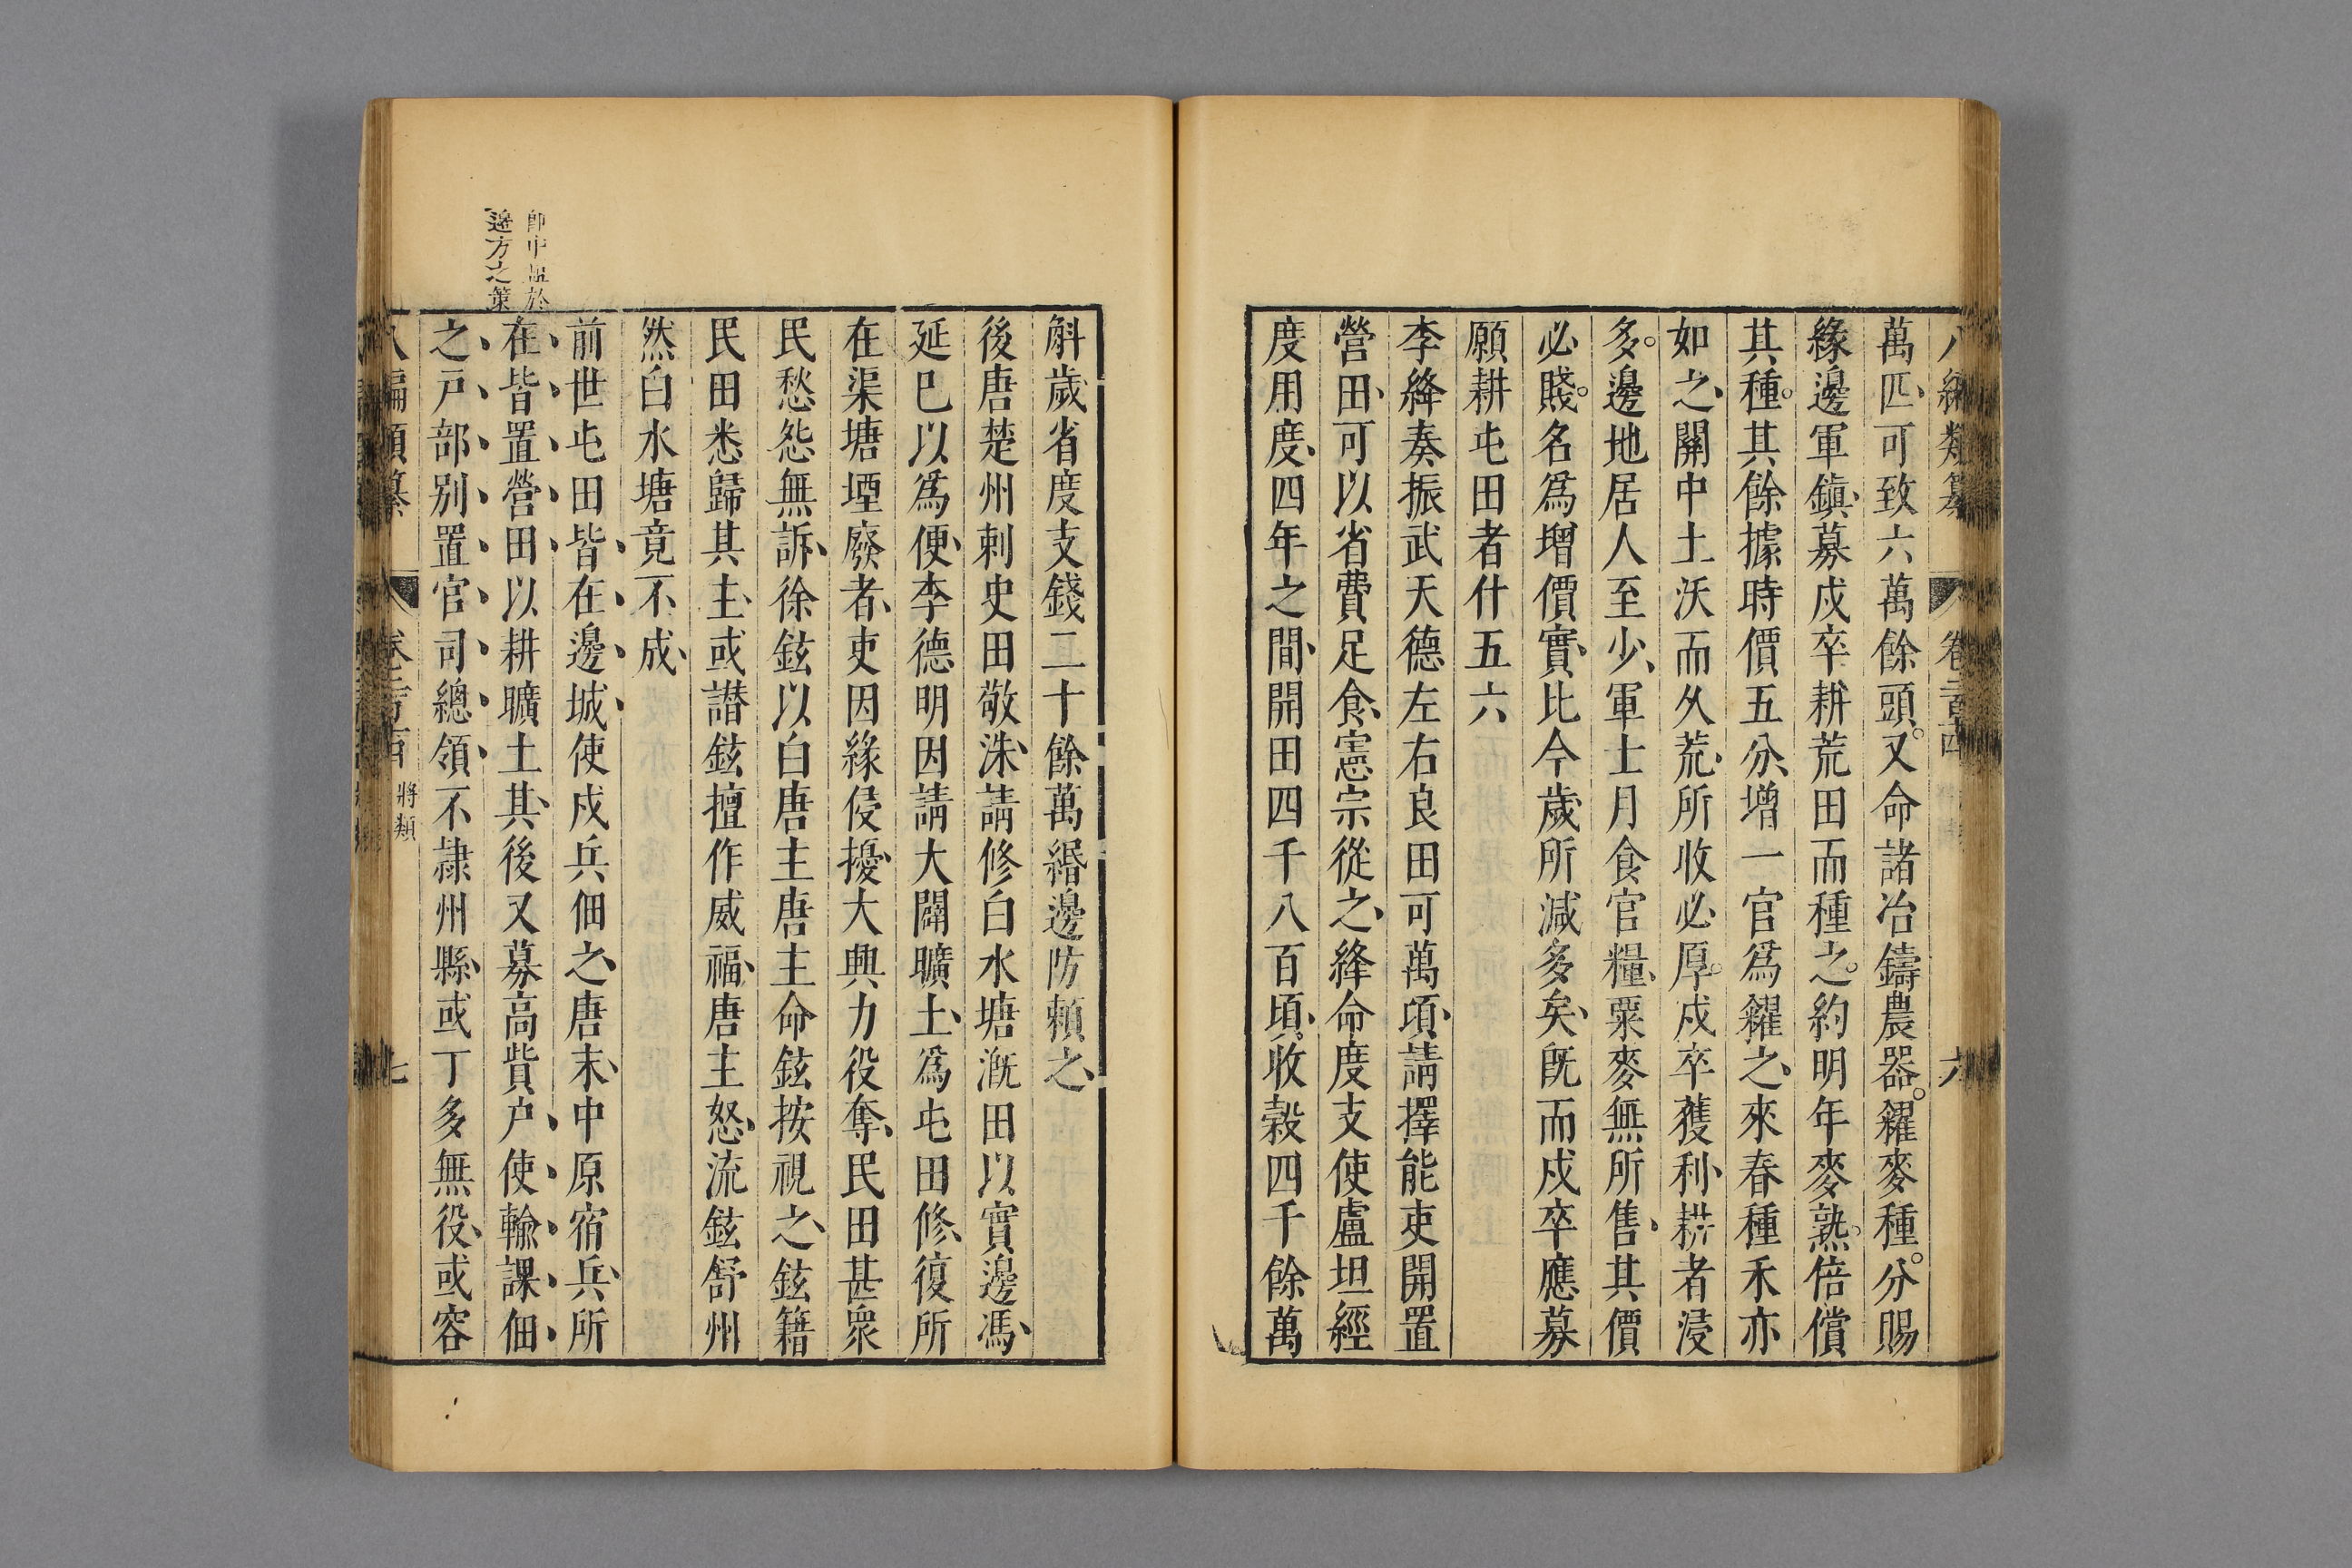 萬匹、可致六萬餘頭。又命諸冶鑄農器。糴麥種。分賜
緣邊軍鎮、募戍卒耕荒田而種之。約明年麥熟。倍償
其種。其餘據時價五分、增一官爲糴之、來春種禾亦
如之、關中土沃而久荒、所收必厚。戍卒獲利、耕者浸
多。邊地居人至少、軍士月食官糧、粟麥無所售、其價
必賤。名爲增價、實比今歲所減多矣、旣而戍卒應募
願耕屯田者什五六
李絳奏振武天德左右良田可萬頃、請擇能吏開置
營田、可以省費足食、憲宗從之、絳命度支使盧坦經
度用度、四年之間、開田四千八百頃、收穀四千餘萬
斛歲省度支錢二十餘萬緡邊防賴之、
後唐楚州刺史田敬洙、請修白水塘漑田以實邊、馮、
延巳以爲便、李德明因請大闢曠土、爲屯田修、復所
在渠塘堙廢者、吏因緣侵擾、大興力役奪、民田甚衆
民愁怨無訴、徐鉉以白唐主唐主命鉉按視之、鉉籍
民田悉歸其主、或譖鉉擅作威福、唐主怒、流鉉舒州
然白水塘竟不成、
前世屯田皆、在、邊、城、使戍兵佃之、唐末、中原宿兵、所
在、皆、置、營、田、以耕曠土其、後又募高貲户、使、輸、課、佃、
之、戸、部、别、置、官、司、總、領、不隷州縣、或丁多無役、或容
邊方之策
八編類纂
將類
七